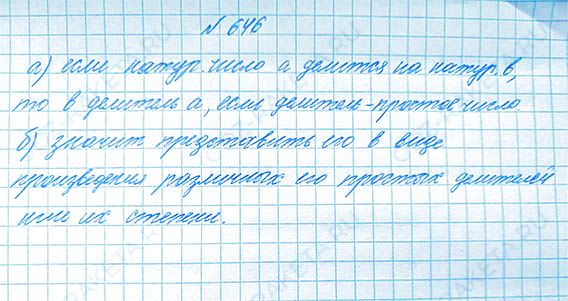 № 646
а) если натур. число а делится на натур. в,
то в делитель а, если делитель - простое число.
б) значит представить его в виде
произведения различных его простых делителей
или их степени.